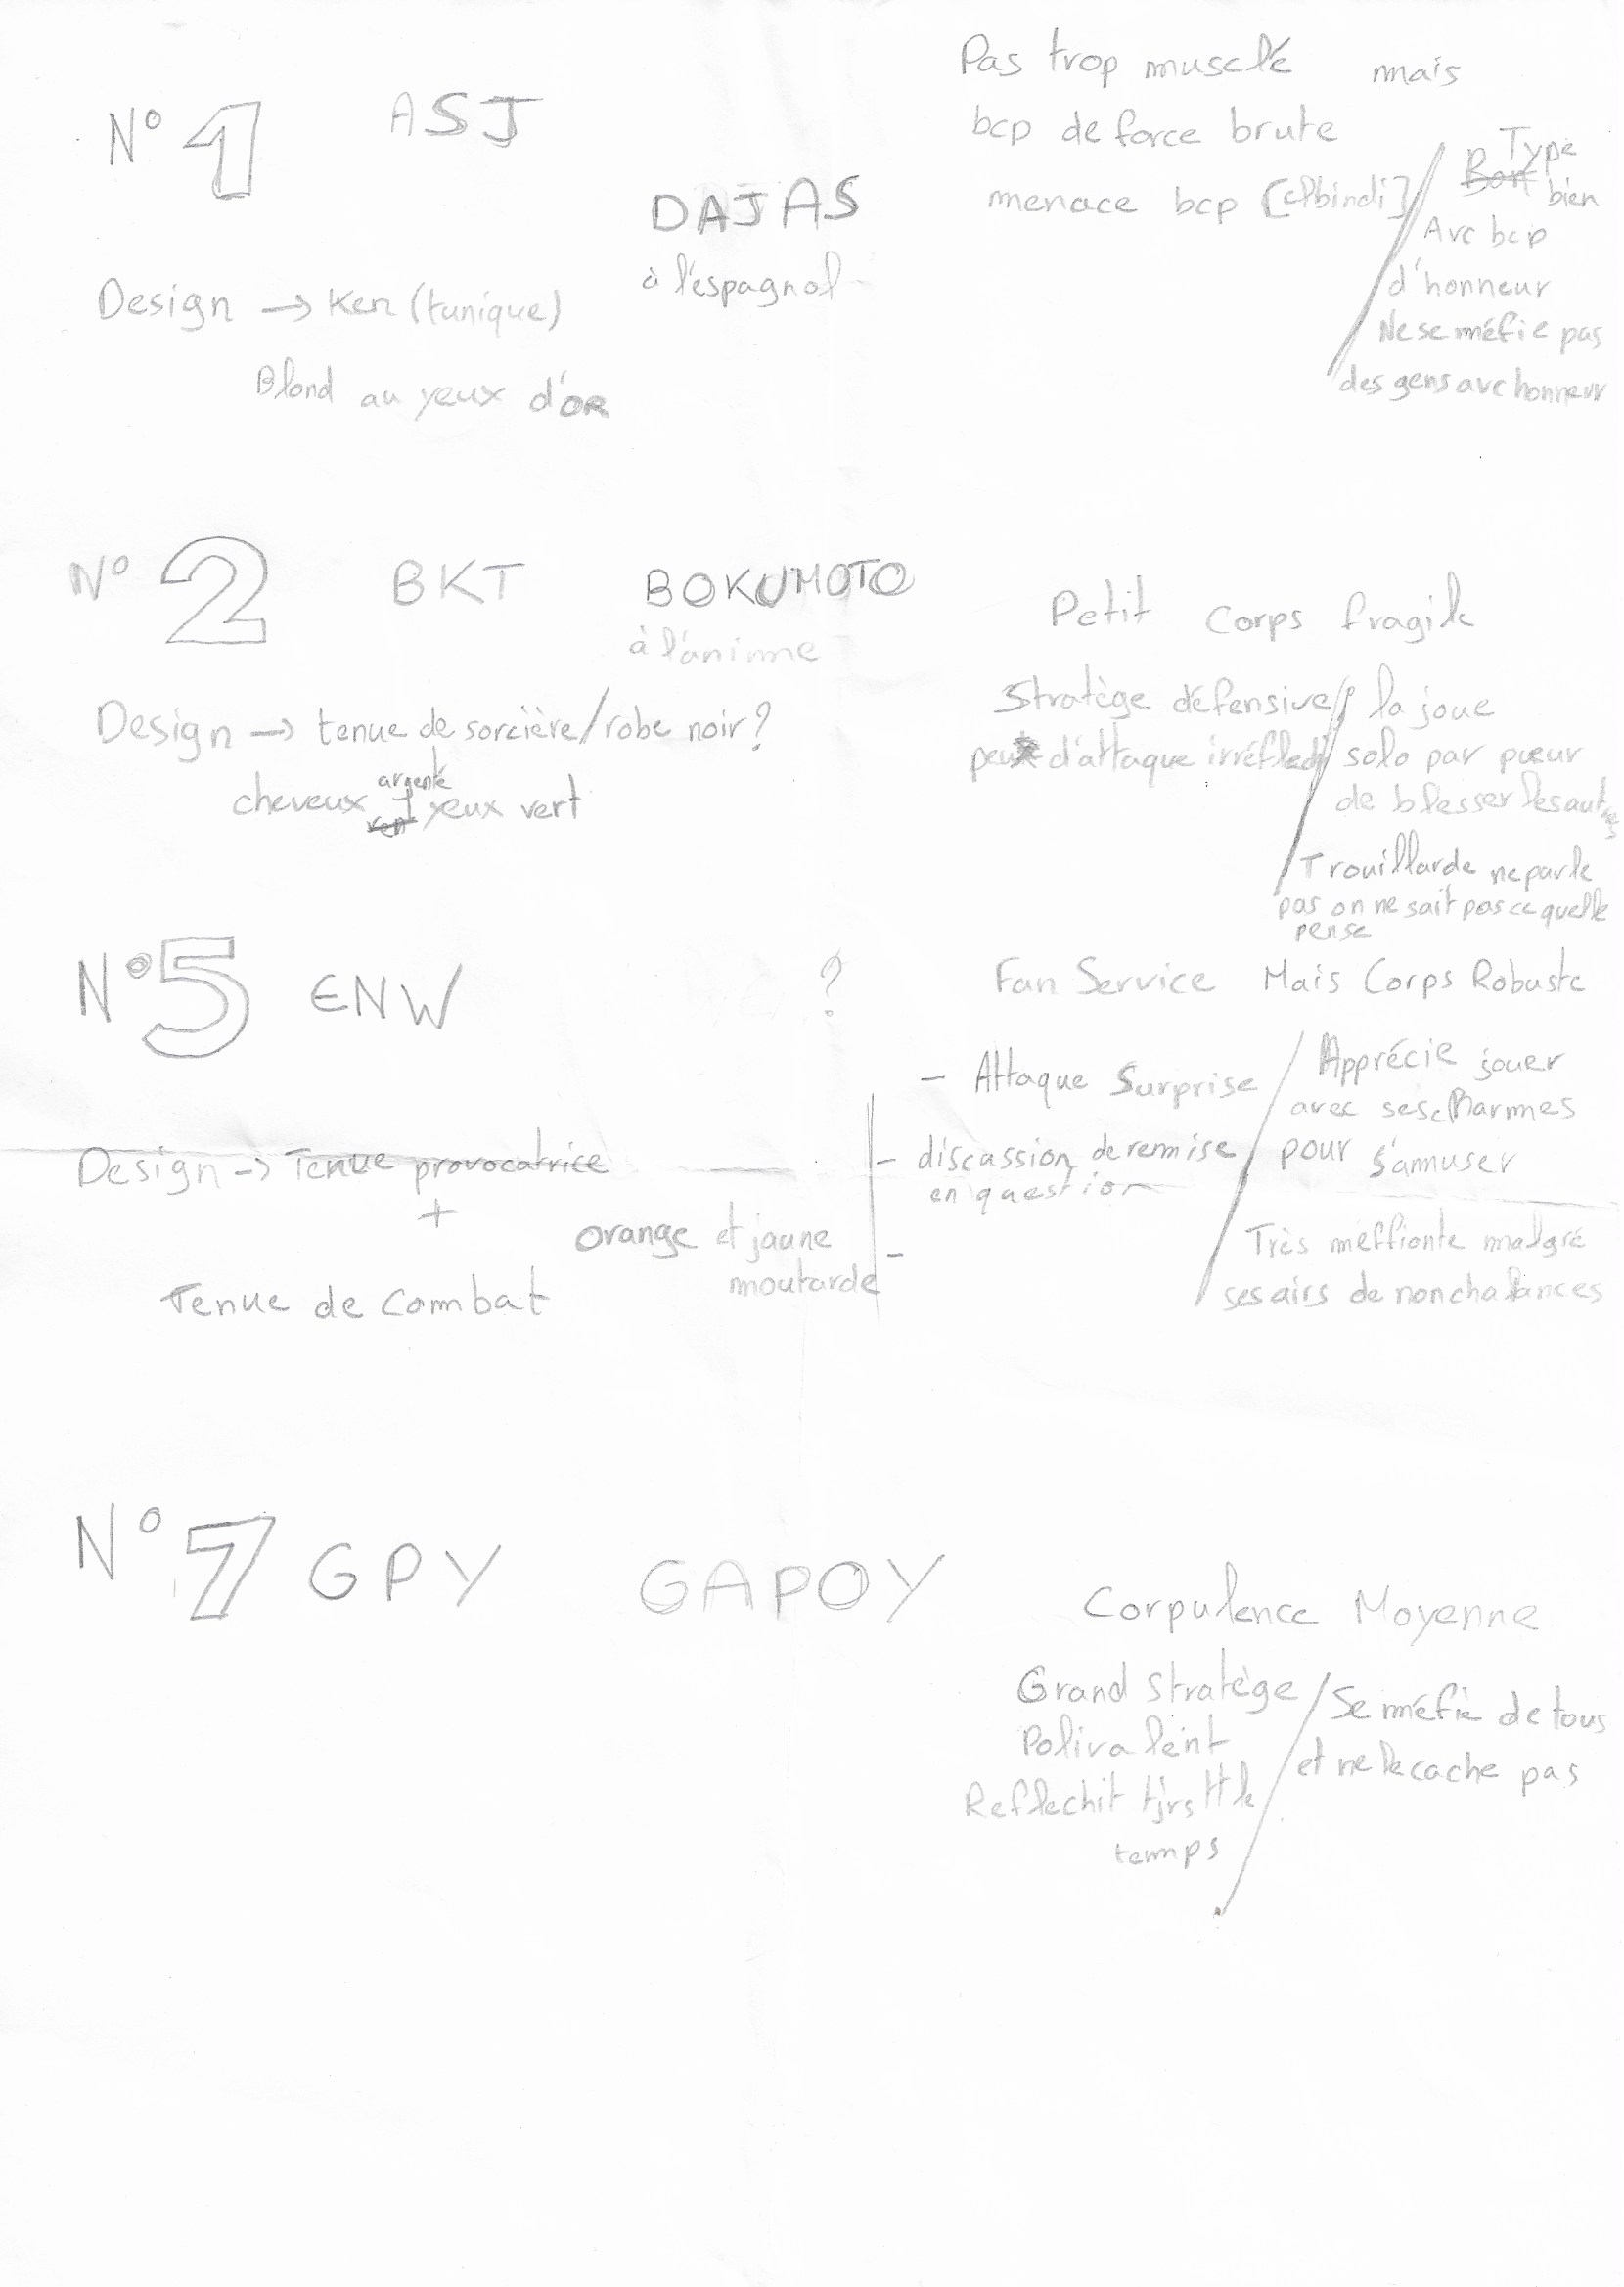 N° 1 ASJ
DAJAS
à l'espagnol
Design → Ken (tunique)
Blond au yeux d'OR
Pas trop musclé mais
bcp de force brute
menace bcp
Type
Bon bien
Avc bcp
d'honneur
Ne se méfie pas
des gens avc honneur
N° 2 BKT BOKUMOTO
à l'anime
Design → tenue de sorcière/robe noir?
argenté
cheveux yeux vert
vert
Petit Corps fragile
Stratège défensive
peu d'attaque irréfledi
la joue
solo par pueur
de blesser les autres
Trouillarde ne parle
pas on ne sait pas ce quelle
pense
N° 5 ENW ?
Design → Tenue provocatrice
+
Tenue de combat
orange et jaune
moutarde
Fan Service Mais Corps Robuste
- Attaque Surprise
- discussion de remise
en question
-
Apprécie jouer
avec ses charmes
pour s'amuser
Très méffiante malgré
ses airs de nonchalances
N° 7 GPY GAPOY
Corpulence Moyenne
Grand stratège
Polivalent
Reflechit tjrs tt le
temps
Se méfie de tous
et ne le cache pas